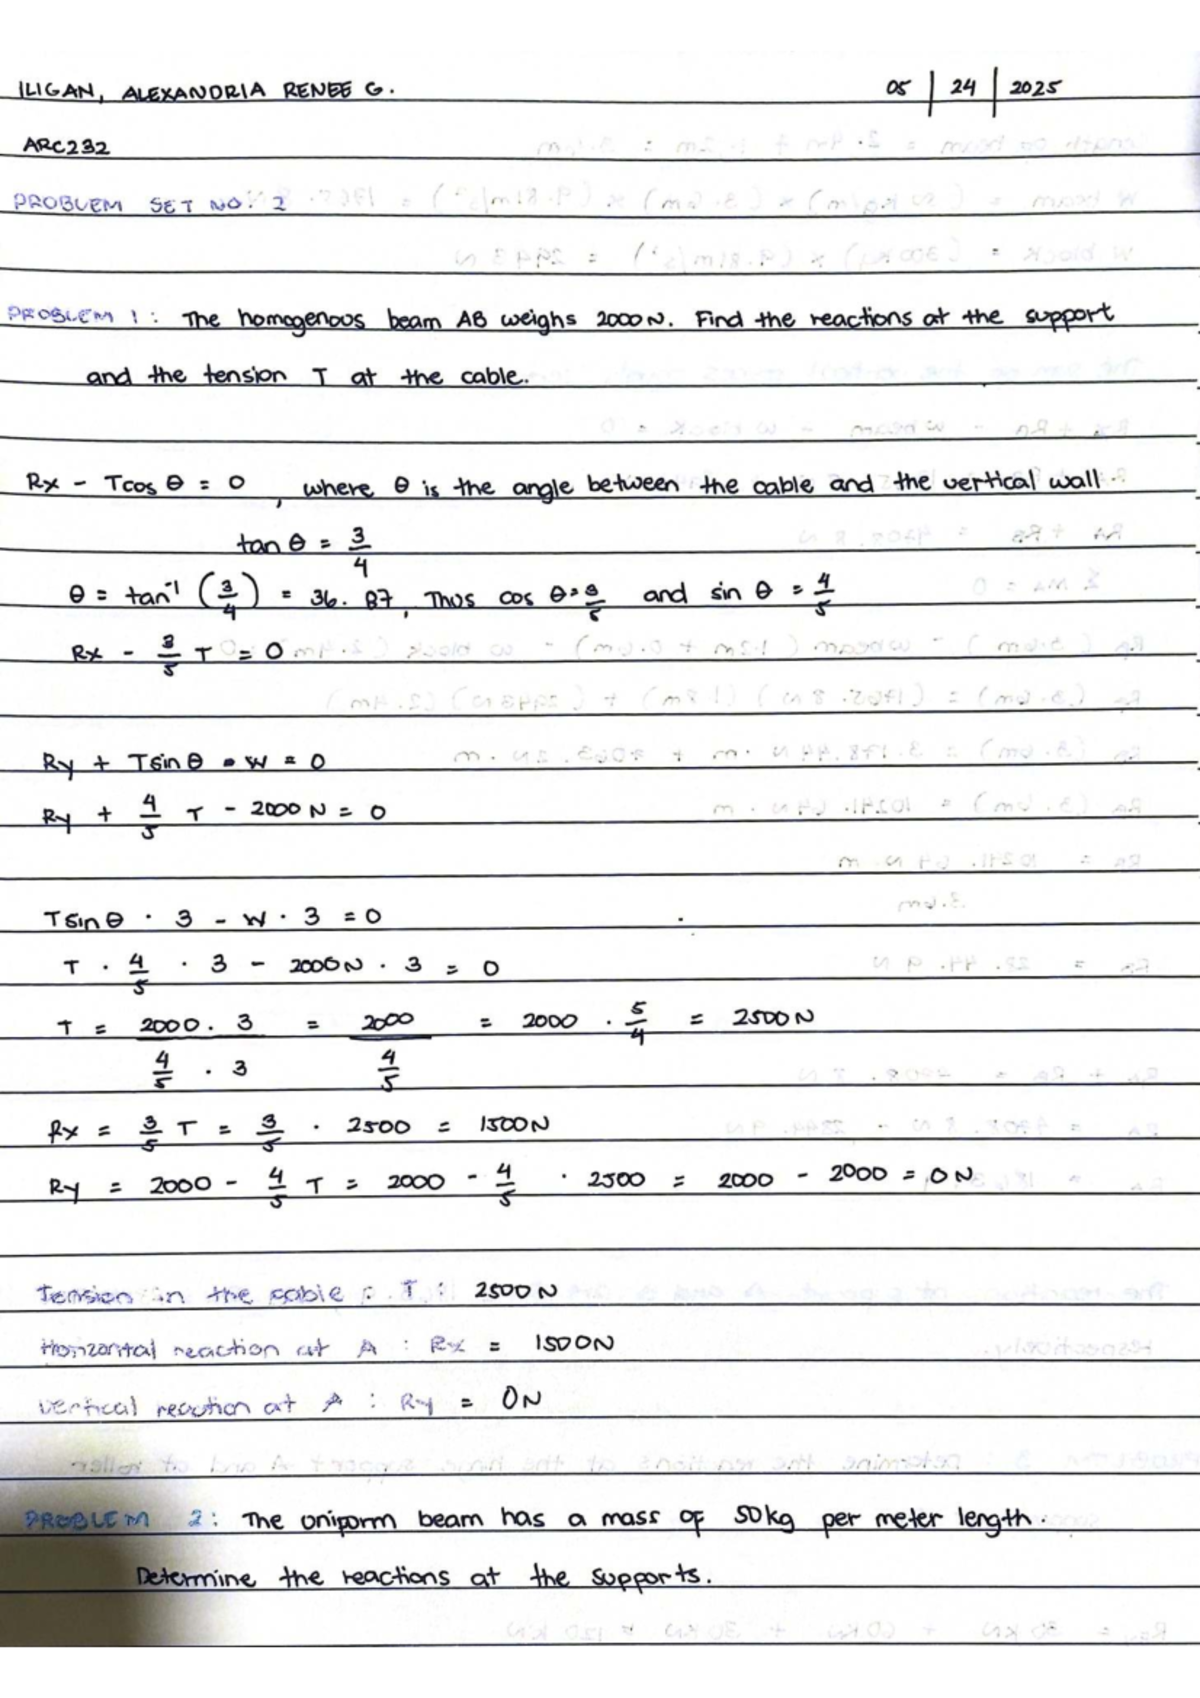 ILIGAN, ALEXANDRIA RENEE G. 05 | 24 | 2025
ARC232
PROBLEM SET NO. 2
PROBLEM 1: The homogenous beam AB weighs 2000N. Find the reactions at the support
and the tension T at the cable.
Rx - Tcos θ = 0, where θ is the angle between the cable and the vertical wall.
tan θ = 3/4
θ = tan⁻¹ (3/4) = 36.87, Thus cos θ = 3/5 and sin θ = 4/5
Rx - 3/5 T = 0
Ry + Tsin θ - W = 0
Ry + 4/5 T - 2000 N = 0
Tsin θ · 3 - W · 3 = 0
T · 4/5 · 3 - 2000N · 3 = 0
T = 2000 · 3 / 4/5 · 3 = 2000 / 4/5 = 2000 · 5/4 = 2500N
Rx = 3/5 T = 3/5 · 2500 = 1500N
Ry = 2000 - 4/5 T = 2000 - 4/5 · 2500 = 2000 - 2000 = 0N
Tension in the cable : T : 2500N
Horizontal reaction at A : Rx = 1500N
Vertical reaction at A : Ry = 0N
PROBLEM 2: The uniform beam has a mass of 50kg per meter length.
Determine the reactions at the supports.